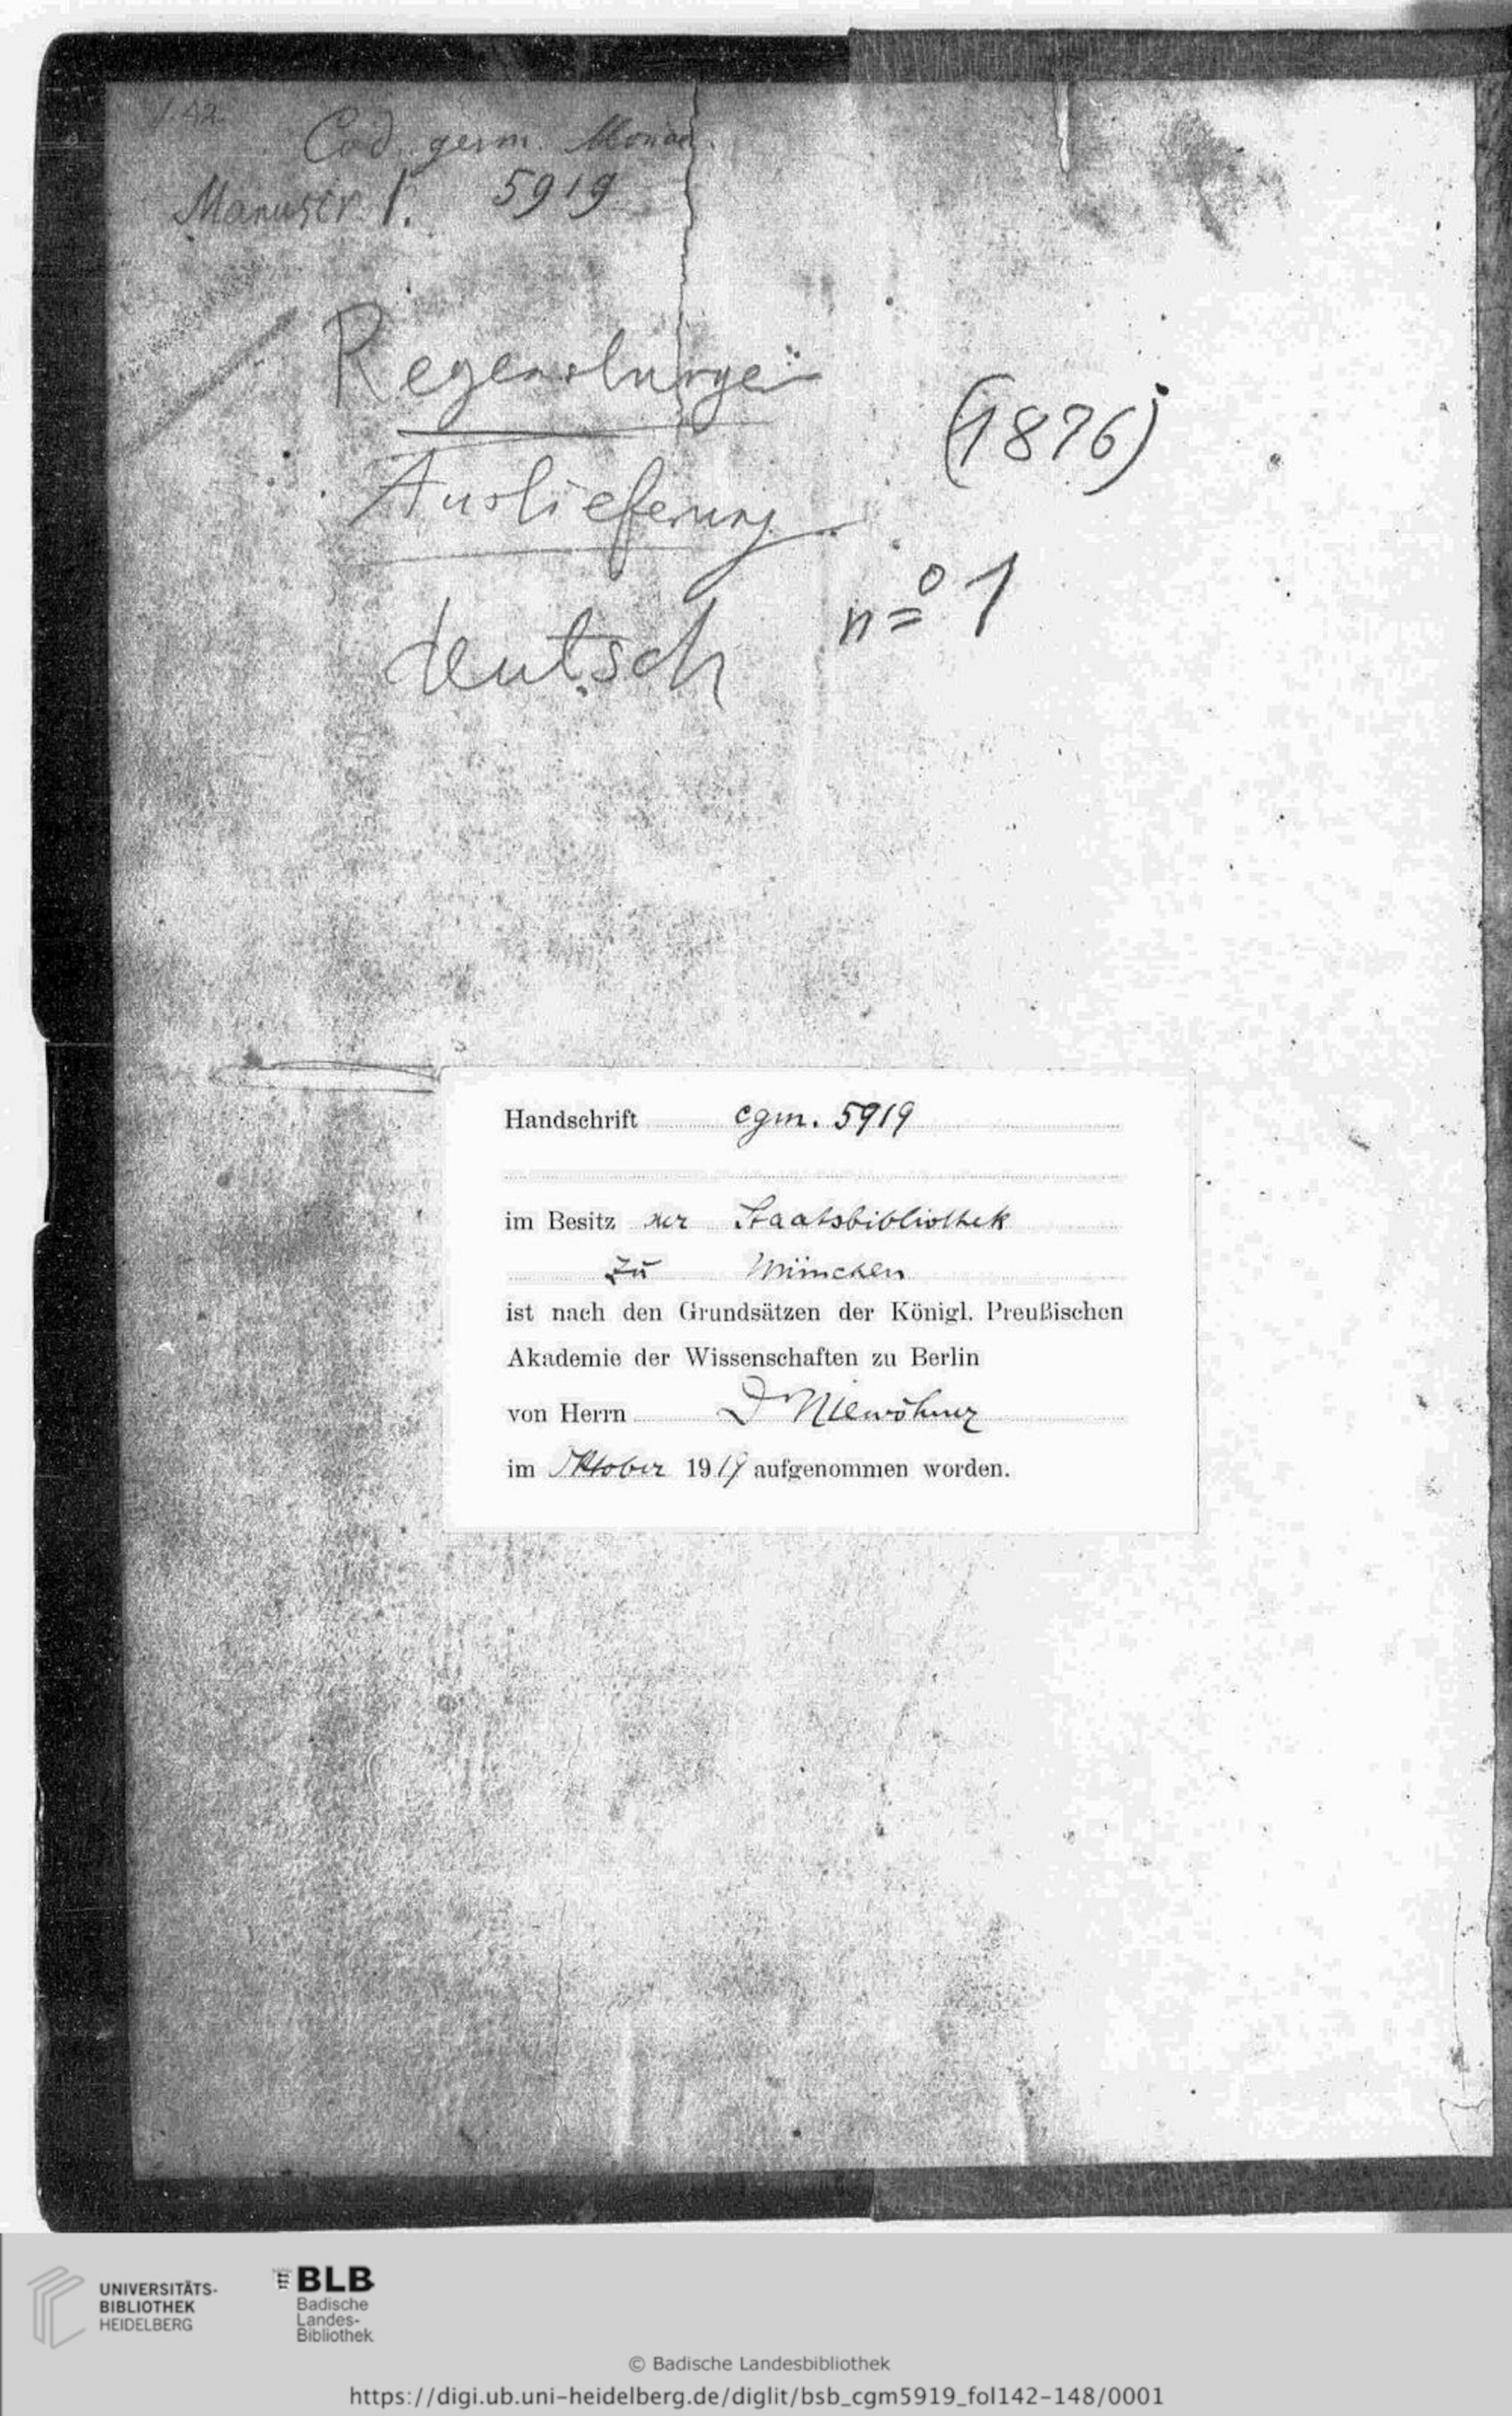 142
Cod. germ. Monac.
Manuscr. 1. 5919
Regensburger
(1876)
Auslieferung
nº 1
deutsch
Handschrift cgm. 5919
im Besitz der Staatsbibliothek
zu München
ist nach den Grundsätzen der Königl. Preußischen
Akademie der Wissenschaften zu Berlin
von Herrn Dr Niewöhner
im Oktober 1919 aufgenommen worden.
UNIVERSITÄTS-
BIBLIOTHEK
HEIDELBERG
BLB
Badische
Landes-
Bibliothek
© Badische Landesbibliothek
https://digi.ub.uni-heidelberg.de/diglit/bsb_cgm5919_fol142-148/0001